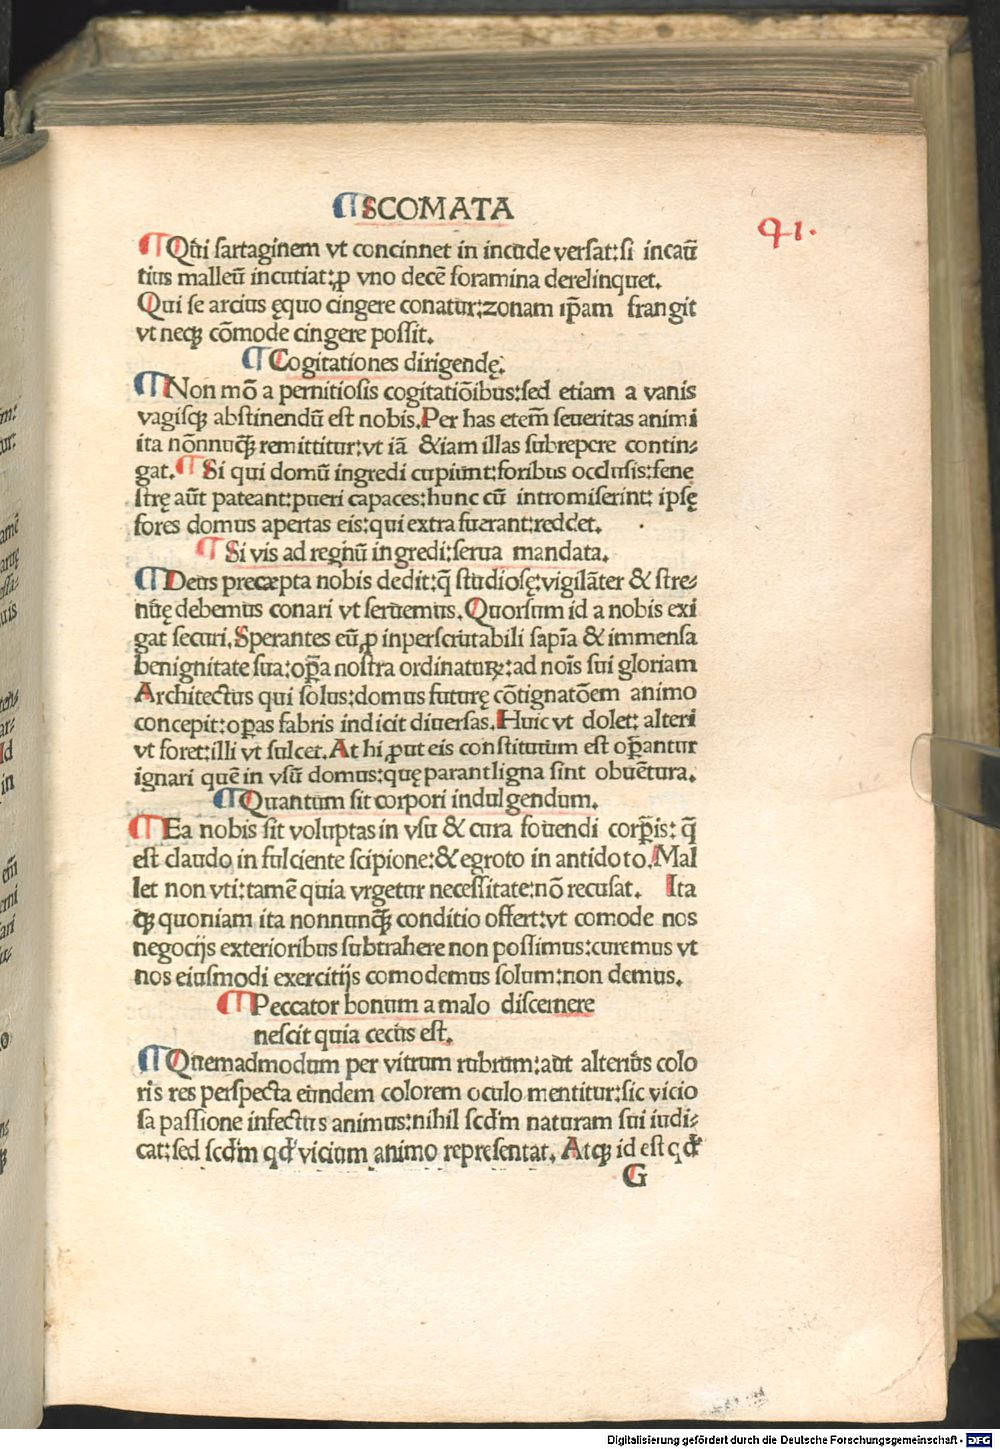 ¶ SCOMATA
91.
¶ Qui sartaginem vt concinnet in incude versat: si incaū
tius malleū incutiat: ꝓ vno decē foramina derelinquet.
Qui se arcius ęquo cingere conatur: zonam ip̄am frangit
vt neqꝫ cōmode cingere possit.
¶ Cogitationes dirigendę.
¶ Non mō a pernitiosis cogitatiōibus: sed etiam a vanis
vagisqꝫ abstinendū est nobis. Per has etem̄ seueritas animi
ita nōnnūqꝫ remittitur: vt iā & iam illas subrepere contin⸗
gat. ¶ Si qui domū ingredi cupiunt: foribus occlusis: fene
strę aūt pateant: pueri capaces: hunc cū intromiserint: ipsę
fores domus apertas eis: qui extra fuerant: reddet.
¶ Si vis ad regnū ingredi: serua mandata.
¶ Deus precæpta nobis dedit: q̄ studiosę: vigilāter & stre⸗
nuę debemus conari vt seruemus. Quorsum id a nobis exi
gat securi. Sperantes eū ꝓ inperscrutabili sapīa & immensa
benignitate sua: op̄a nostra ordinaturꝫ: ad noīs sui gloriam
Architectus qui solus: domus futurę cōtignatōem animo
concepit: op̄as fabris indicit diuersas. Huic vt dolet: alteri
vt foret: illi vt sulcet. At hi ꝓut eis constitutum est op̄antur
ignari quē in vsū domus: quę parant ligna sint obuētura.
¶ Quantum sit corpori indulgendum.
¶ Ea nobis sit voluptas in vsu & cura fouendi corp̄is: q̄
est claudo in fulciente scipione: & egroto in antidoto. Mal
let non vti: tamē quia vrgetur necessitate: nō recusat. Ita
qꝫ quoniam ita nonnunqꝫ conditio offert: vt comode nos
negocijs exterioribus subtrahere non possimus: curemus vt
nos eiusmodi exercitijs comodemus solum: non demus.
¶ Peccator bonum a malo discernere
nescit quia cecus est.
¶ Quemadmodum per vitrum rubrum: aut alterius colo
ris res perspecta eundem colorem oculo mentitur: sic vicio
sa passione infectus animus: nihil scd̄m naturam sui iudi⸗
cat: sed scd̄m qd̓ vicium animo representat. Atqꝫ id est qd̓
G
Digitalisierung gefördert durch die Deutsche Forschungsgemeinschaft - DFG